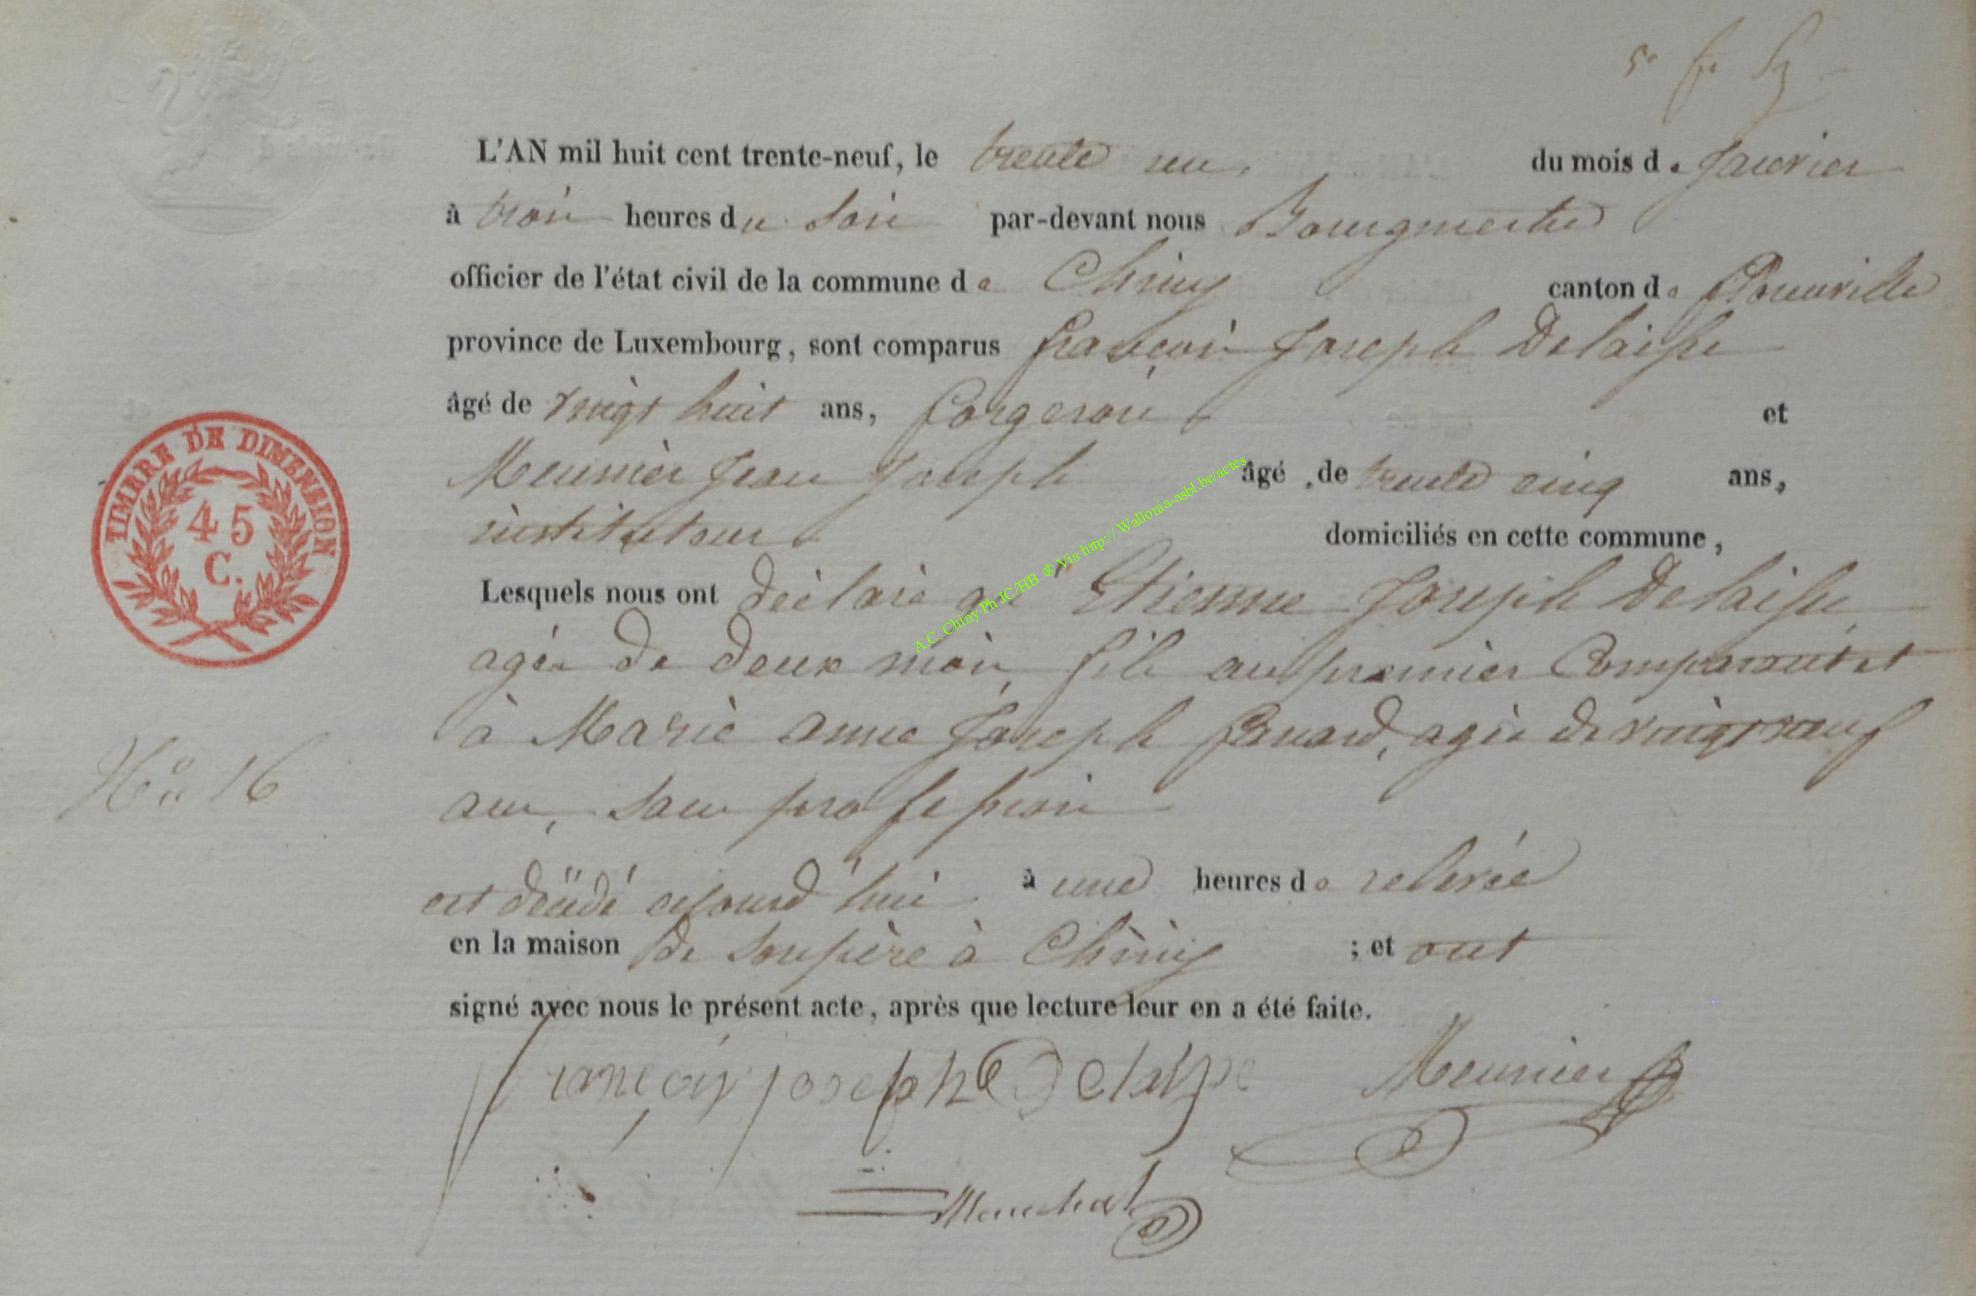 L'AN mil huit cent trente-neuf, le trente un du mois de Janvier
à trois heures du soir par-devant nous Bourgmestre
officier de l'état civil de la commune de Chiny canton de Florenville
province de Luxembourg, sont comparus François Joseph Delaisse
âgé de vingt huit ans, forgeron et
Meunier Jean Joseph âgé de trente cinq ans,
instituteur domiciliés en cette commune,
Lesquels nous ont déclaré que Etienne Joseph Delaisse
agé de deux mois, fils au premier Comparant et
à Marie Anne Joseph, agée de vingt neuf
ans, sans profession
est décédé cejourd'hui à une heures de relevée
en la maison de son père à Chiny ; et ont
signé avec nous le présent acte, après que lecture leur en a été faite.
françois joseph Delaisse Meunier
TIMBRE DE DIMENSION
45
C.
No 16
A.C. Chiny Ph JC/HB @ Via http://Wallonia-asbl.be/actes